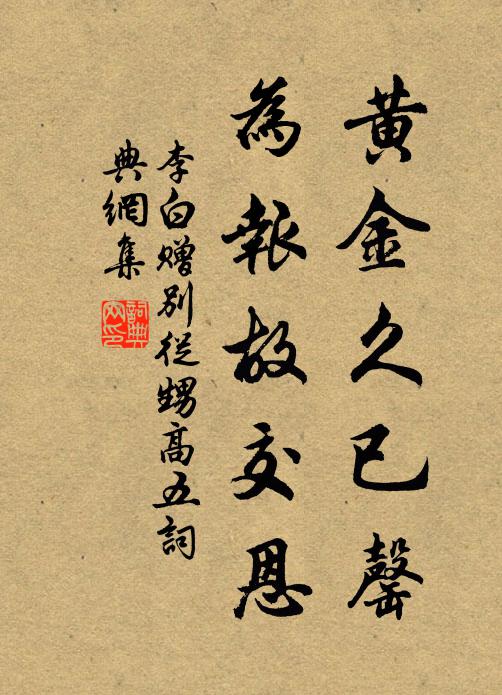 黃金久已罄
為報故交恩
李白贈別從甥高五詞
典網集
詞典
网印